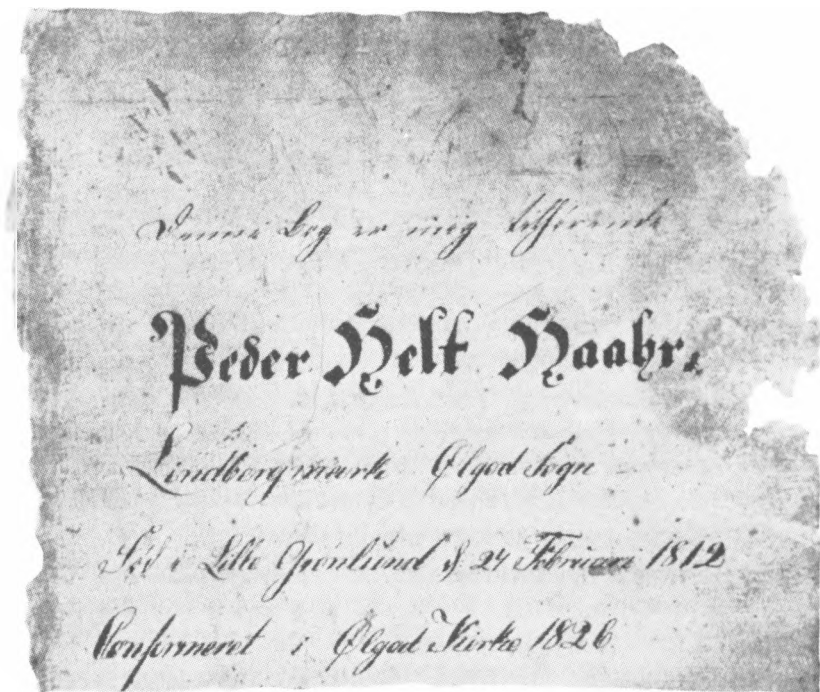 Denne Bog er mig tilhørende
Peder Helt Haahr.
Lindbergmark Ølgod Sogn
Fød i Lille Grønlund d. 24 Februari 1812
Confirmeret i Ølgod Kirke 1826.